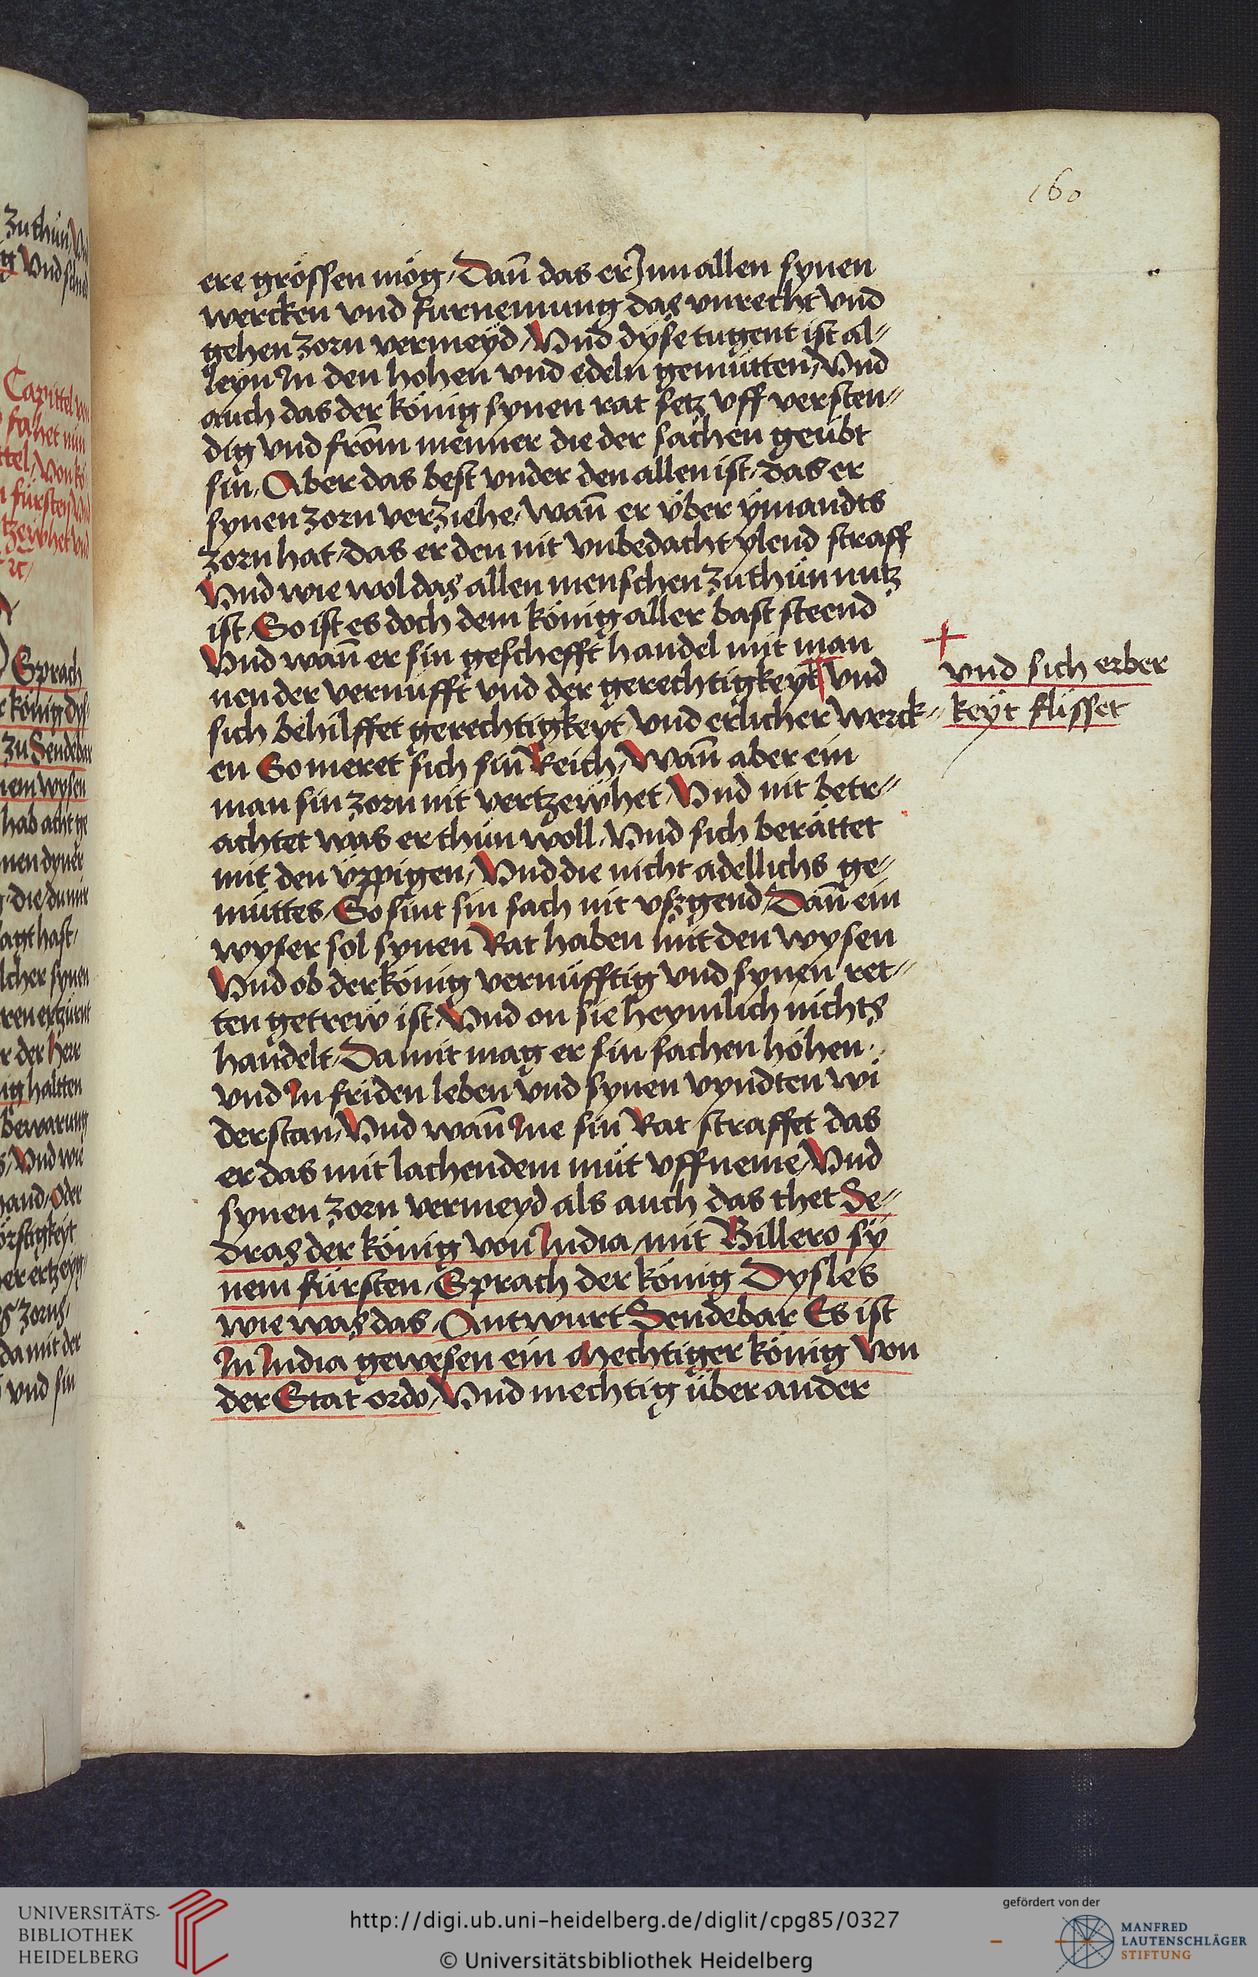 160
ere grössen mög / Dañ das er Jnn allen synen
wercken vnd furnemung das vnrecht vnd
gehen zorn vermeyd / Vnd dyse tugent ist al„
leyn Jn den hohen vnd edeln gemütten / Vnd
auch das der könig synen rat setz vff versten„
dig vnd from menner die der sachen geübt
sin / Aber das best vnder den allen ist / das er
synen zorn verziehe / wañ er über ymandts
zorn hat / das er den nit vnbedacht ylend straff
Vnd wie wol das allen menschen zu thün nutz
ist / So ist es doch dem könig aller bast steend
Vnd wañ er sin geschefft handel mit man
nen der vernüfft vnd der gerechtigkeyt Vnd
+ vnd sich erber
keyt flisset
sich behilffet gerechtigkeyt vnd erlicher werck„
en So meret sich sin Reich / Wañ aber ein
man sin zorn nit vertzeyhet / Vnd nit betr„
achtet was er thün woll / Vnd sich berättet
mit den üppigen / Vnd die nicht adellichs ge„
müttes / So sint sin sach nit vßgend / Dañ ein
wyser sol synen Rat haben mit den wysen
Vnd ob der könig vernüfftig vnd synen ret„
ten getrew ist / Vnd on sie heymlich nichts
handelt / Da mit mag er sin sachen höhen /
vnd Jn friden leben vnd synen vyndten wi
derstan / Vnd wañ Jne sin Rat straffet das
er das mit lachendem müt vffneme / Vnd
synen zorn vermeyd als auch das thet Se„
dras der könig von Jndia / mit Billero sy
nem fürsten / Sprach der könig Dysles
wie was das / Antwurt Sendebar Es ist
Jn Jndia gewesen ein Mechtiger könig Von
der Stat ordo / Vnd mechtig über ander
zu thün / 
Capittel
fahet
Sprach
könig dys
zu Sendebar
nem wysen
hab acht ge
die du mir
agt hast /
lcher synen
ren ertzürnt
r der herr
ig haltten
Bewarung
Vnd wie
and / Oder
da mit der
vnd sin
UNIVERSITÄTS-
BIBLIOTHEK
HEIDELBERG
http://digi.ub.uni-heidelberg.de/diglit/cpg85/0327
© Universitätsbibliothek Heidelberg
gefördert von der
MANFRED
LAUTENSCHLÄGER
STIFTUNG